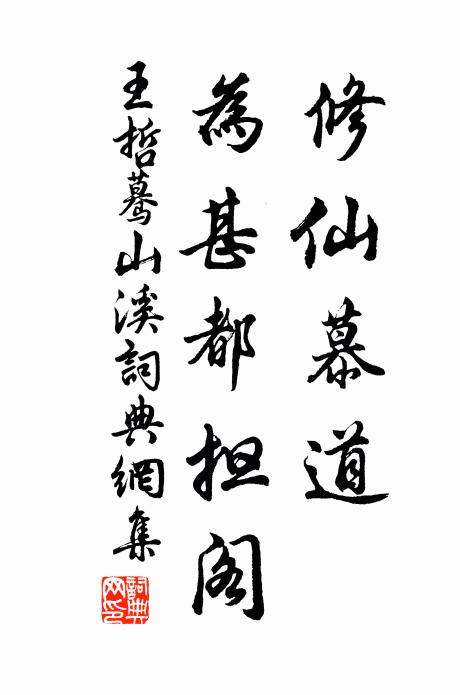 修仙慕道
為甚都担阁
王哲驀山溪詞典網集
詞典网印